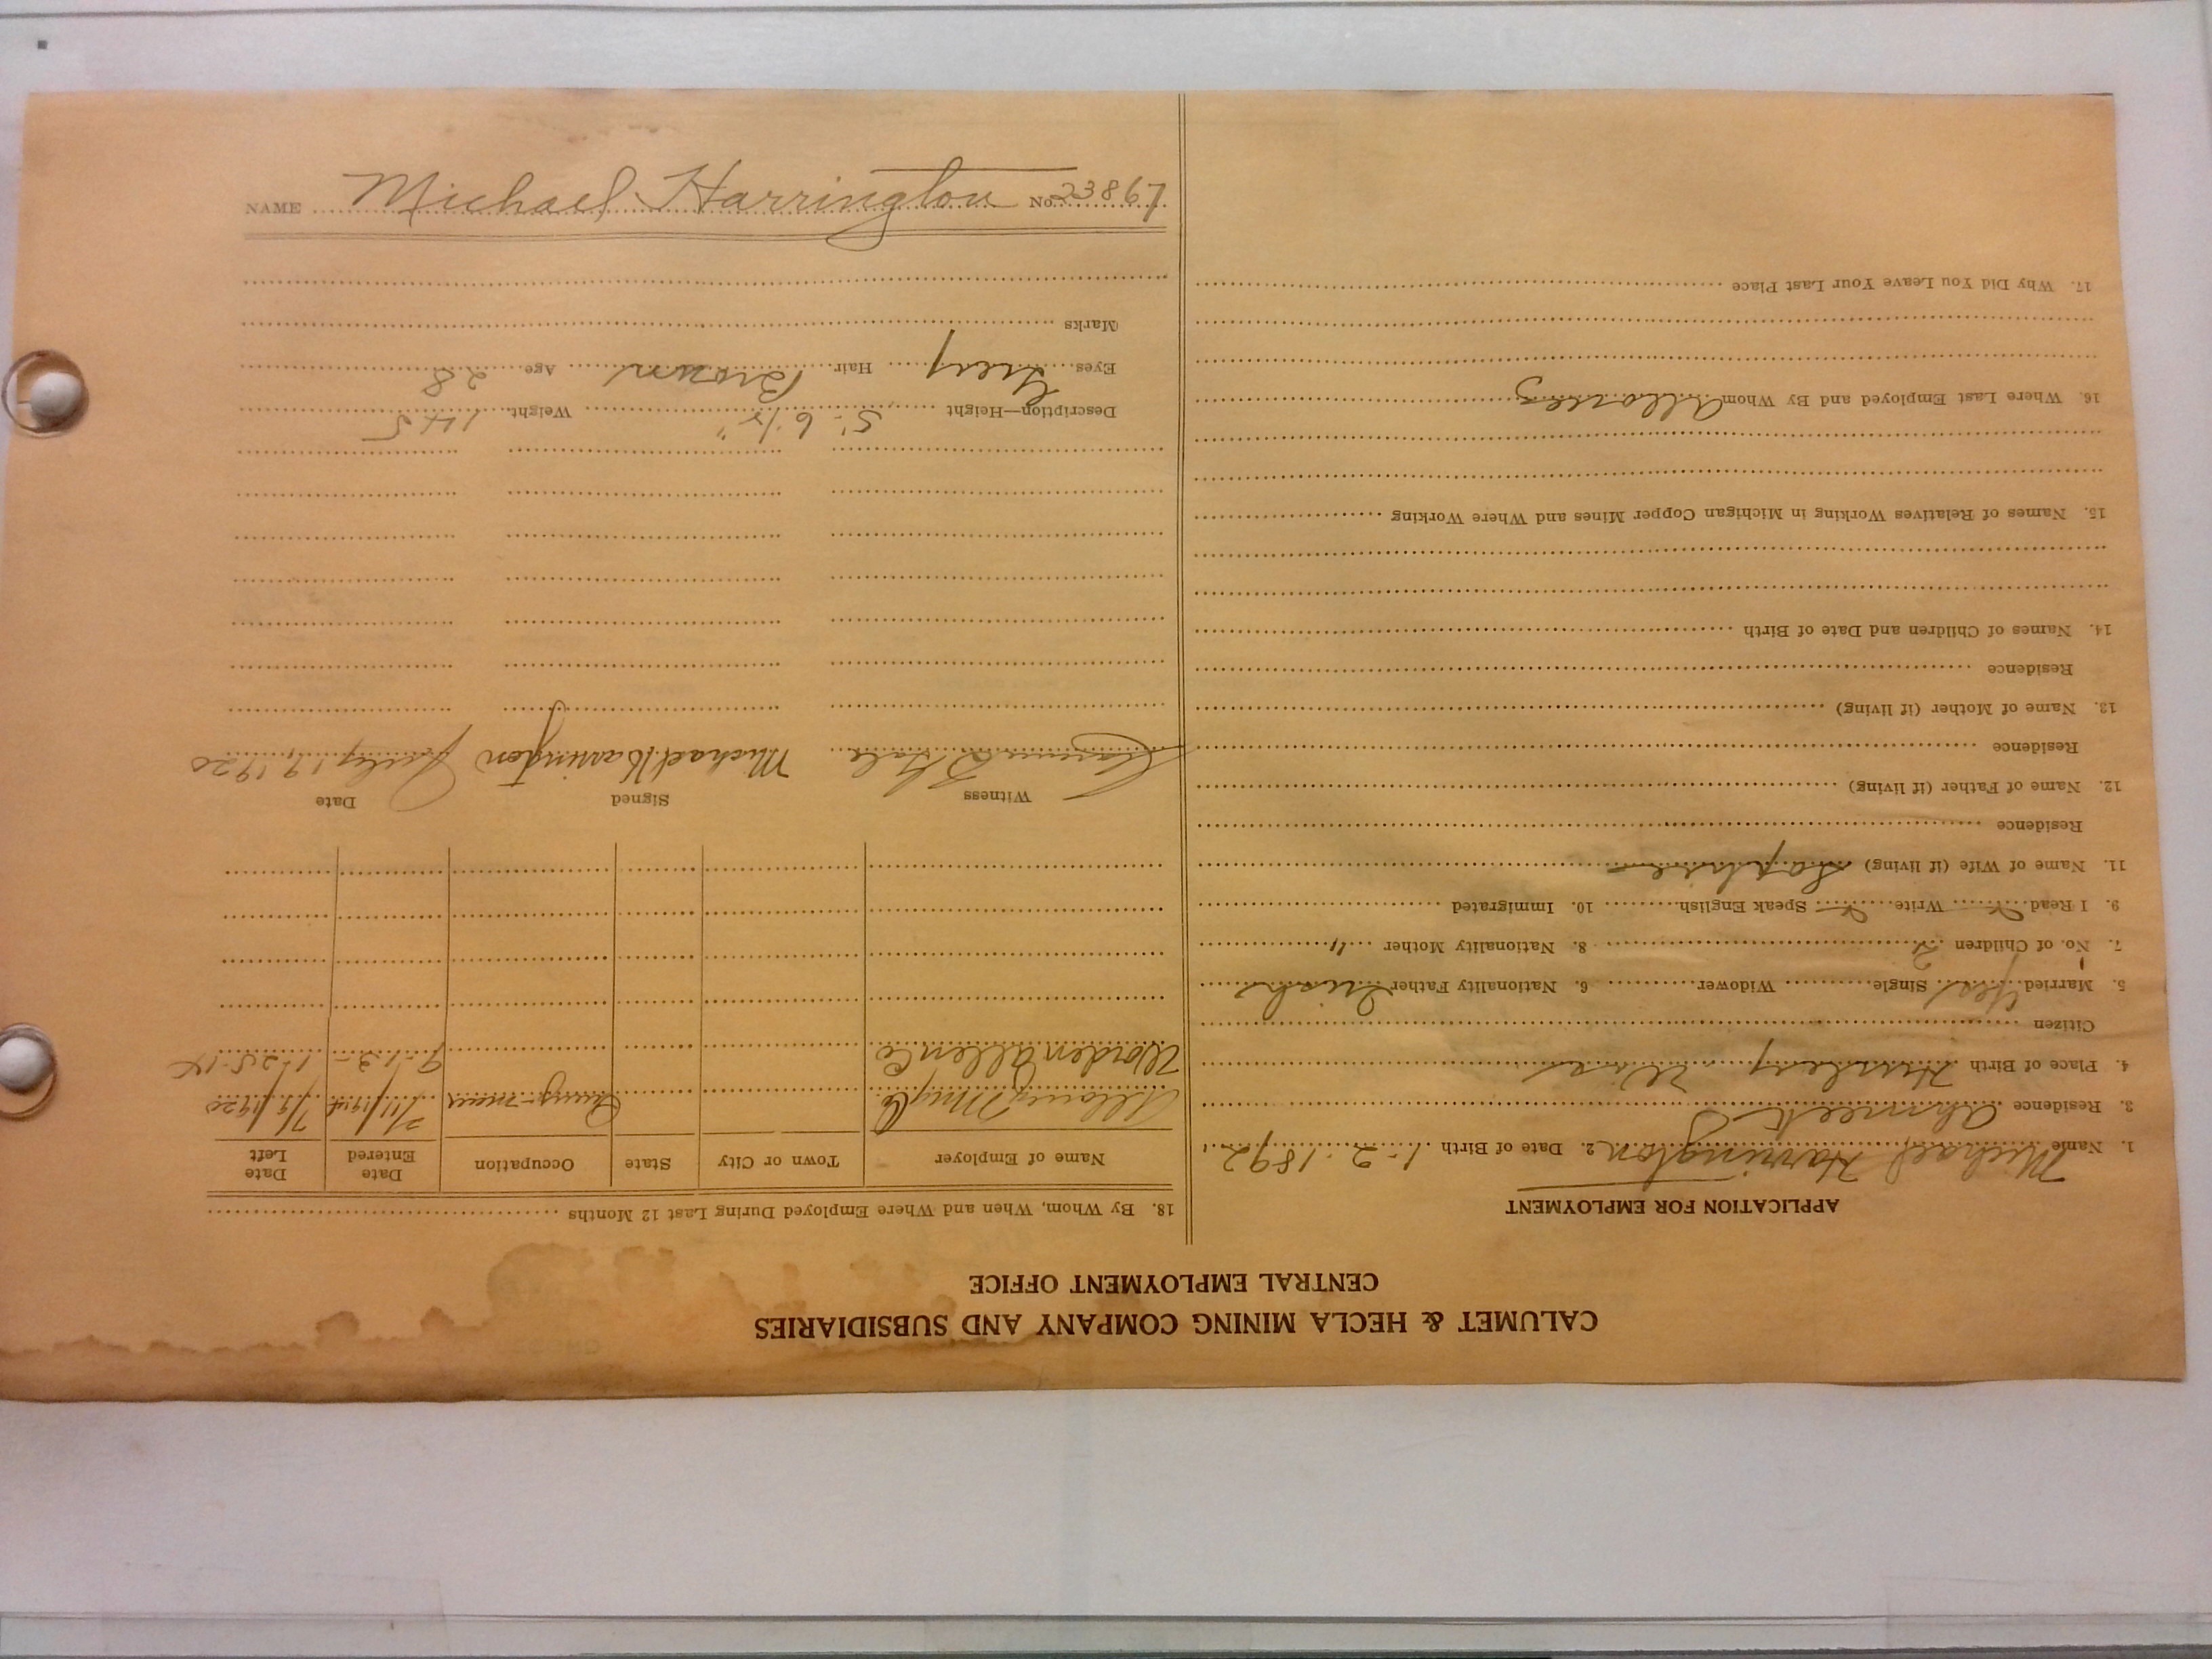 CALUMET & HECLA MINING COMPANY AND SUBSIDIARIES
CENTRAL EMPLOYMENT OFFICE
APPLICATION FOR EMPLOYMENT
1. Name Michael Harrington 2. Date of Birth 1-2-1892
3. Residence Ahmeek
4. Place of Birth Hurley Wis
Citizen
5. Married Yes Single Widower 6. Nationality Father Irish
7. No. of Children 2 8. Nationality Mother "
9. I Read Write Speak English 10. Immigrated
11. Name of Wife (if living) Sophie
Residence
12. Name of Father (if living)
Residence
13. Name of Mother (if living)
Residence
14. Names of Children and Date of Birth
15. Names of Relatives Working in Michigan Copper Mines and Where Working
16. Where Last Employed and By Whom Allouez
17. Why Did You Leave Your Last Place
18. By Whom, When and Where Employed During Last 12 Months
Name of Employer Town or City State Occupation Date Entered Date Left
Allouez Mng Co miner 7/9/1920
Worden Allen Co
Witness Signed Date
Michael Harrington July 19 1920
Description—Height 5' 6½" Weight 145
Eyes Grey Hair Brown Age 28
Marks
NAME Michael Harrington No. 23867